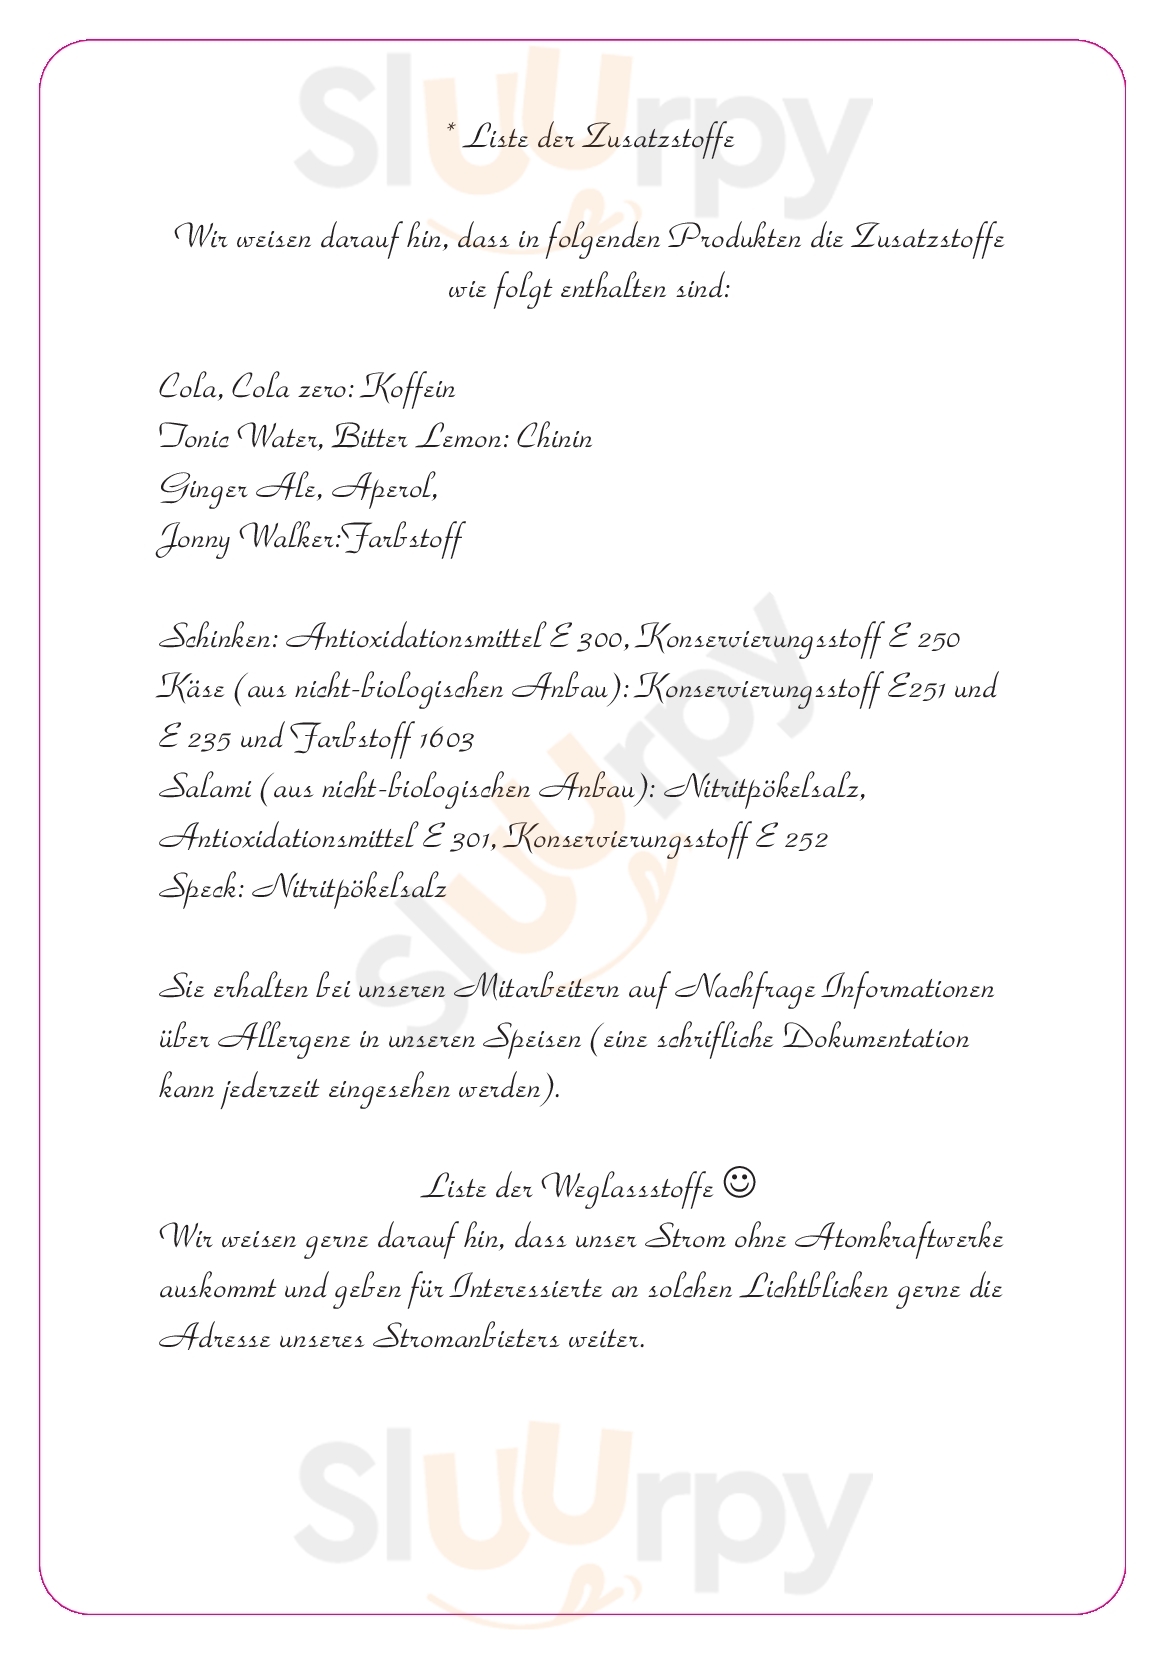 * Liste der Zusatzstoffe
Wir weisen darauf hin, dass in folgenden Produkten die Zusatzstoffe
wie folgt enthalten sind:
Cola, Cola zero: Koffein
Tonic Water, Bitter Lemon: Chinin
Ginger Ale, Aperol,
Jonny Walker:Farbstoff
Schinken: Antioxidationsmittel E 300, Konservierungsstoff E 250
Käse (aus nicht-biologischen Anbau): Konservierungsstoff E251 und
E 235 und Farbstoff 1603
Salami (aus nicht-biologischen Anbau): Nitritpökelsalz,
Antioxidationsmittel E 301, Konservierungsstoff E 252
Speck: Nitritpökelsalz
Sie erhalten bei unseren Mitarbeitern auf Nachfrage Informationen
über Allergene in unseren Speisen (eine schrifliche Dokumentation
kann jederzeit eingesehen werden).
Liste der Weglassstoffe ☺
Wir weisen gerne darauf hin, dass unser Strom ohne Atomkraftwerke
auskommt und geben für Interessierte an solchen Lichtblicken gerne die
Adresse unseres Stromanbieters weiter.
Sluurpy
Sluurpy
Sluurpy